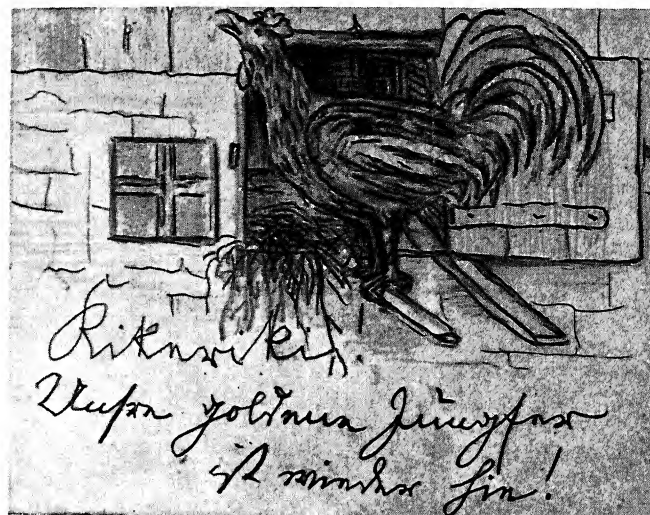 Kikeriki.
Unsre goldene Jungfer
ist wieder hie!